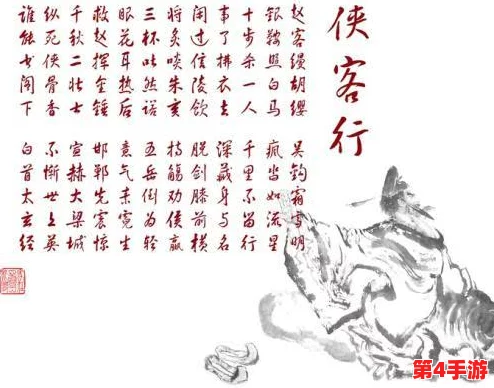 侠客行
赵客缦胡缨 吴钩霜雪明
银鞍照白马 飒沓如流星
十步杀一人 千里不留行
事了拂衣去 深藏身与名
闲过信陵饮 脱剑膝前横
将炙啖朱亥 持觞劝侯嬴
三杯吐然诺 五岳倒为轻
眼花耳热后 意气素霓生
救赵挥金锤 邯郸先震惊
千秋二壮士 宣赫大梁城
纵死侠骨香 不惭世上英
谁能书阁下 白首太玄经
第4手游